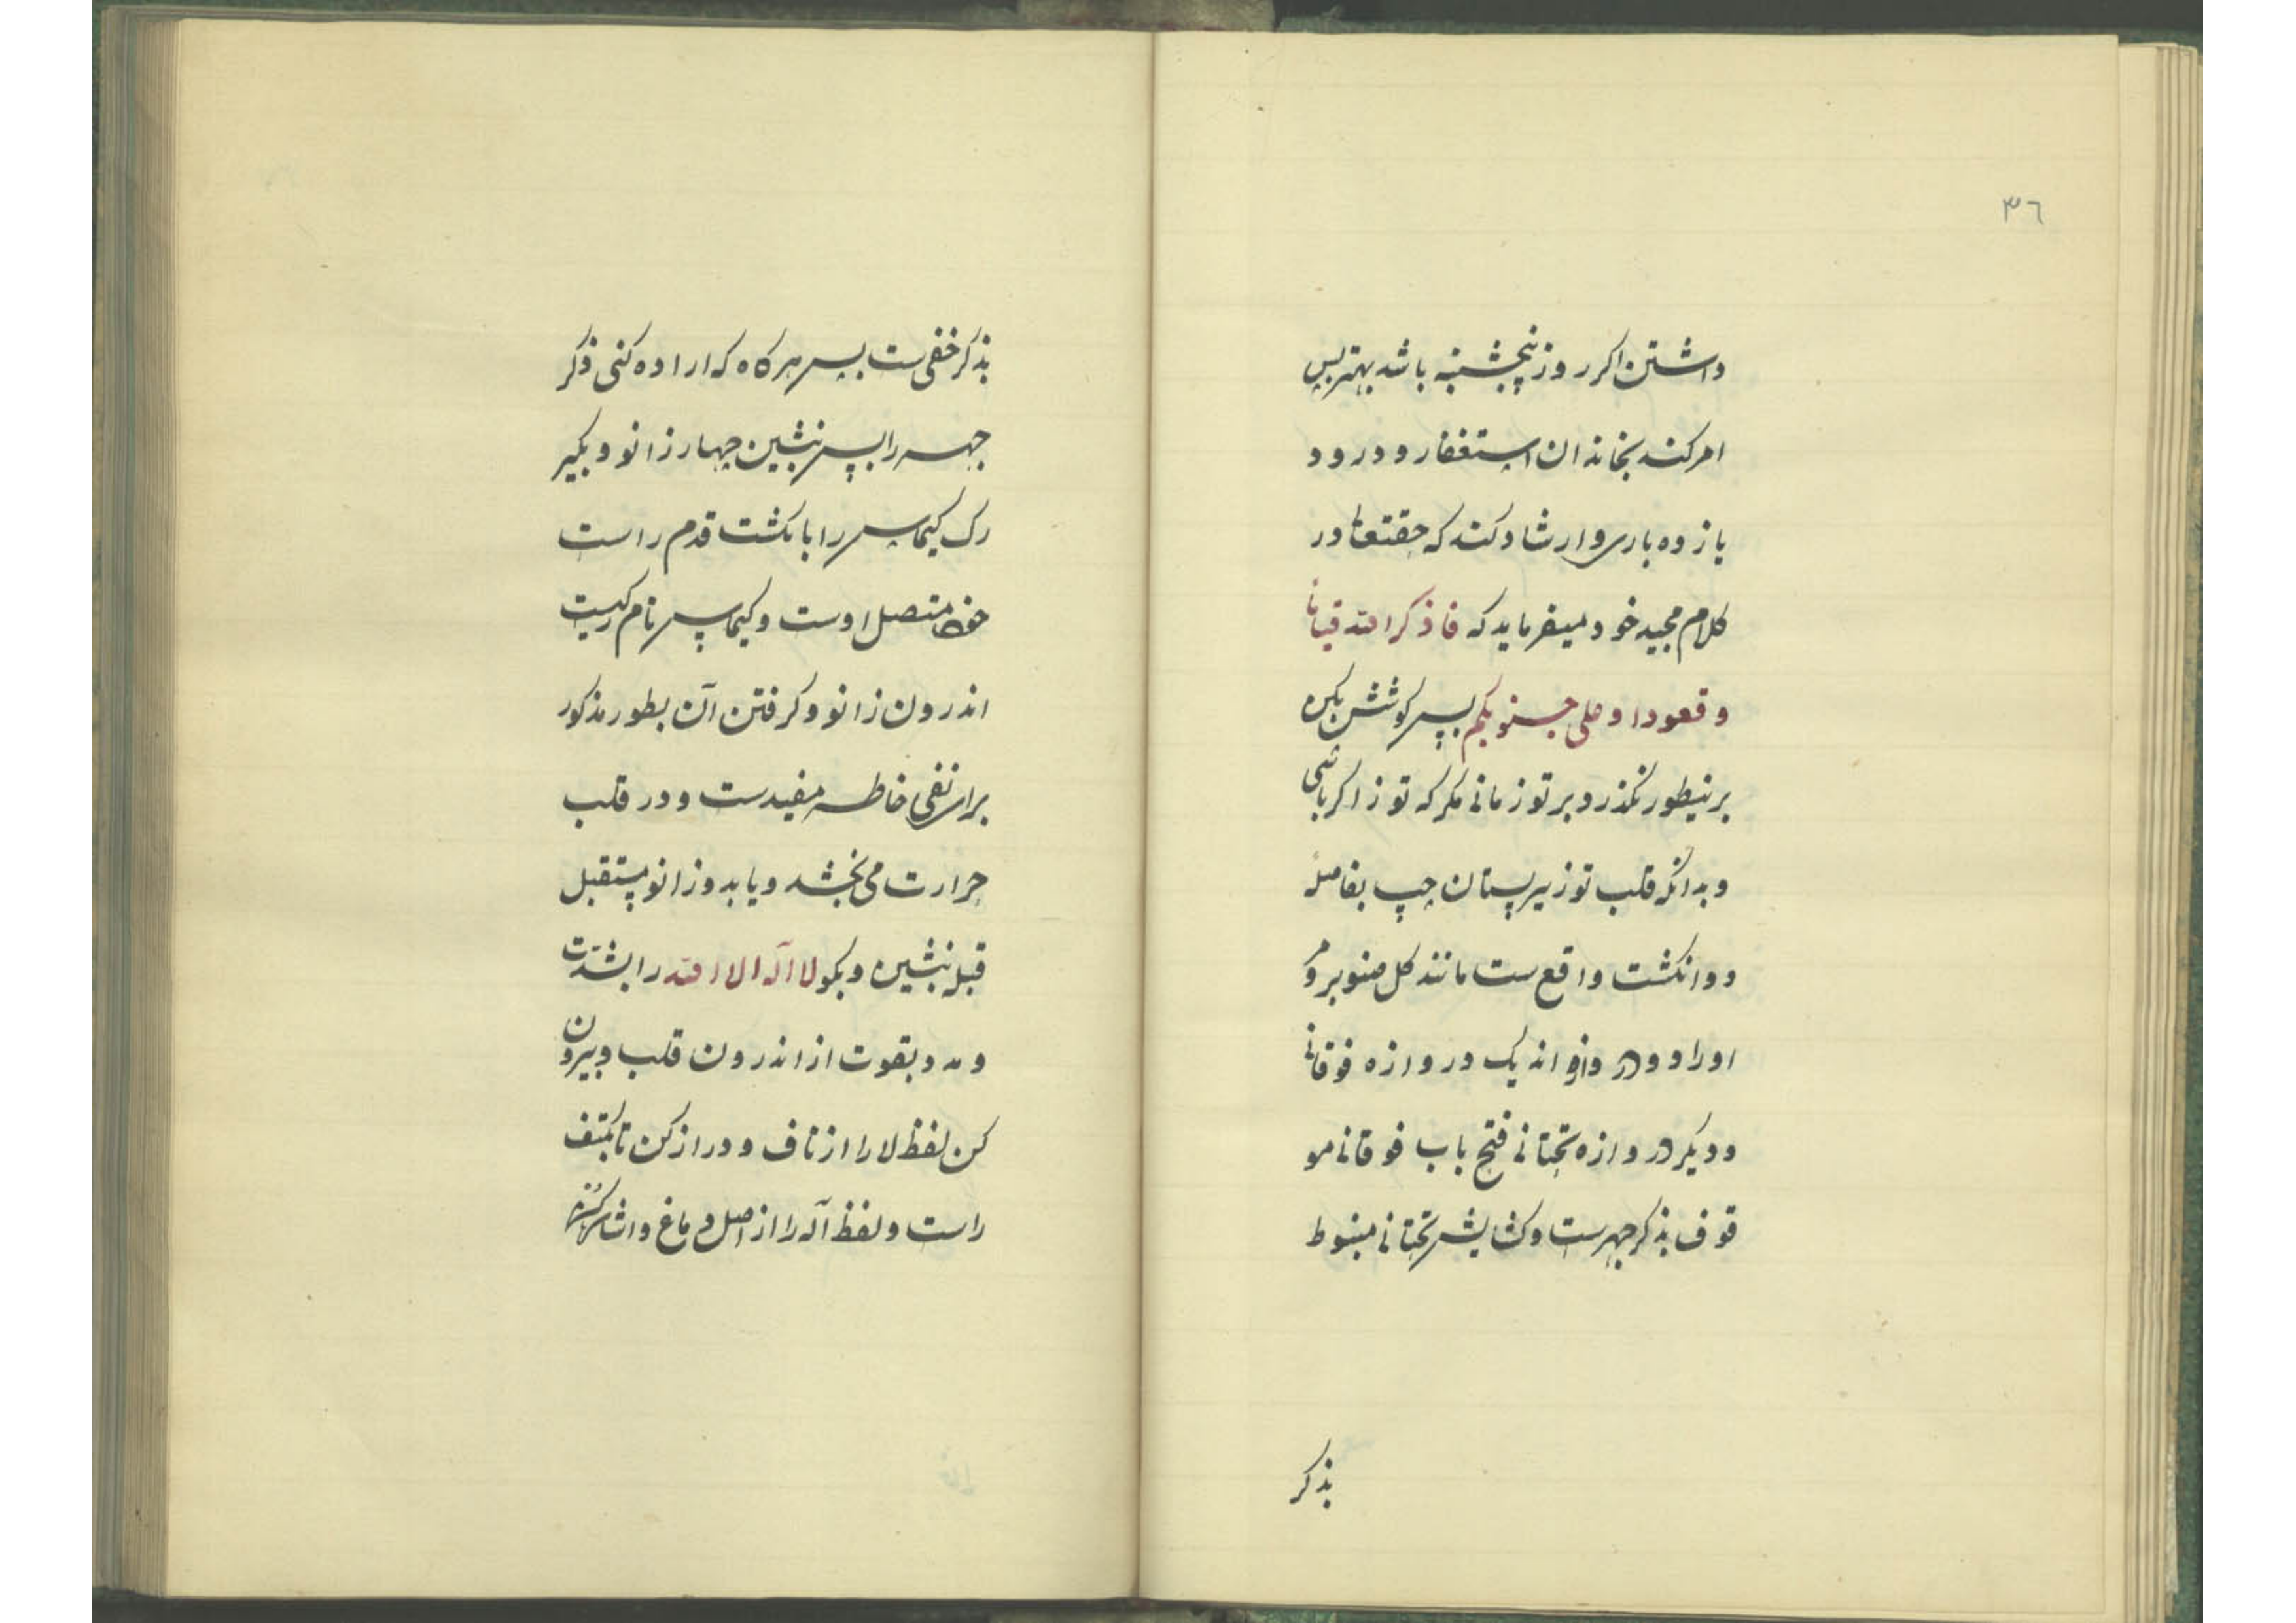 ۳۶
داشتن اکر روز پنجشنبه باشد بهتر پس
امر کند بخاندن استغفار و درود
یازده بار و ارشاد کند که حقتعا در
کلام مجید خود میفرماید که فاذکرا الله قیاما
و قعودا و علی جنوبکم پس کوشش بکن
برینطور نکذرد بر تو زمانی مکر که تو ذاکر باشی
و بدانکه قلب تو زیر پستان چپ بفاصله
دو انکشت واقع ست مانند کل صنوبر و مر
اورا دو در وازه اند یک دروازه فوقانی
و دیکر دروازه تحتانی فتح باب فوقانی مو
قوف بذکر جهرست و کشایش تحتانی منوط
بذکر
بذکر خفی ست پس هرکاه که اراده کنی ذکر
جهر را پس بنشین چهار زانو و بکیر
رک کیماس را بانکشت قدم راست
متصل اوست و کیماس نام رکیت
اندرون زانو و کرفتن آن بطور مذکور
برای نفی خاطر مفیدست و در قلب
حرارت می بخشد و یا بدو زانو مستقبل
قبله بنشین و بکو لا اله الا الله را بشدت
و مد و بقوت از اندرون قلب و بیرون
کن لفظ لا را از ناف و دراز کن تا بکتف
راست و لفظ اله را از اصل دماغ و اشاره